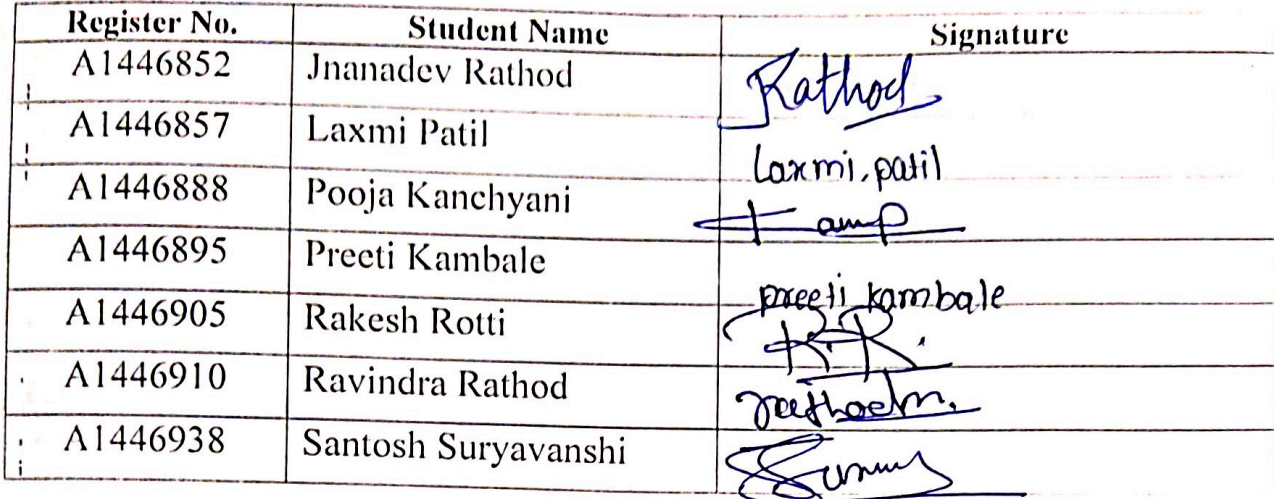 Register No. Student Name Signature
A1446852 Jnanadev Rathod Rathod
A1446857 Laxmi Patil Laxmi.patil
A1446888 Pooja Kanchyani
A1446895 Preeti Kambale preeti kambale
A1446905 Rakesh Rotti R.R.
A1446910 Ravindra Rathod
A1446938 Santosh Suryavanshi